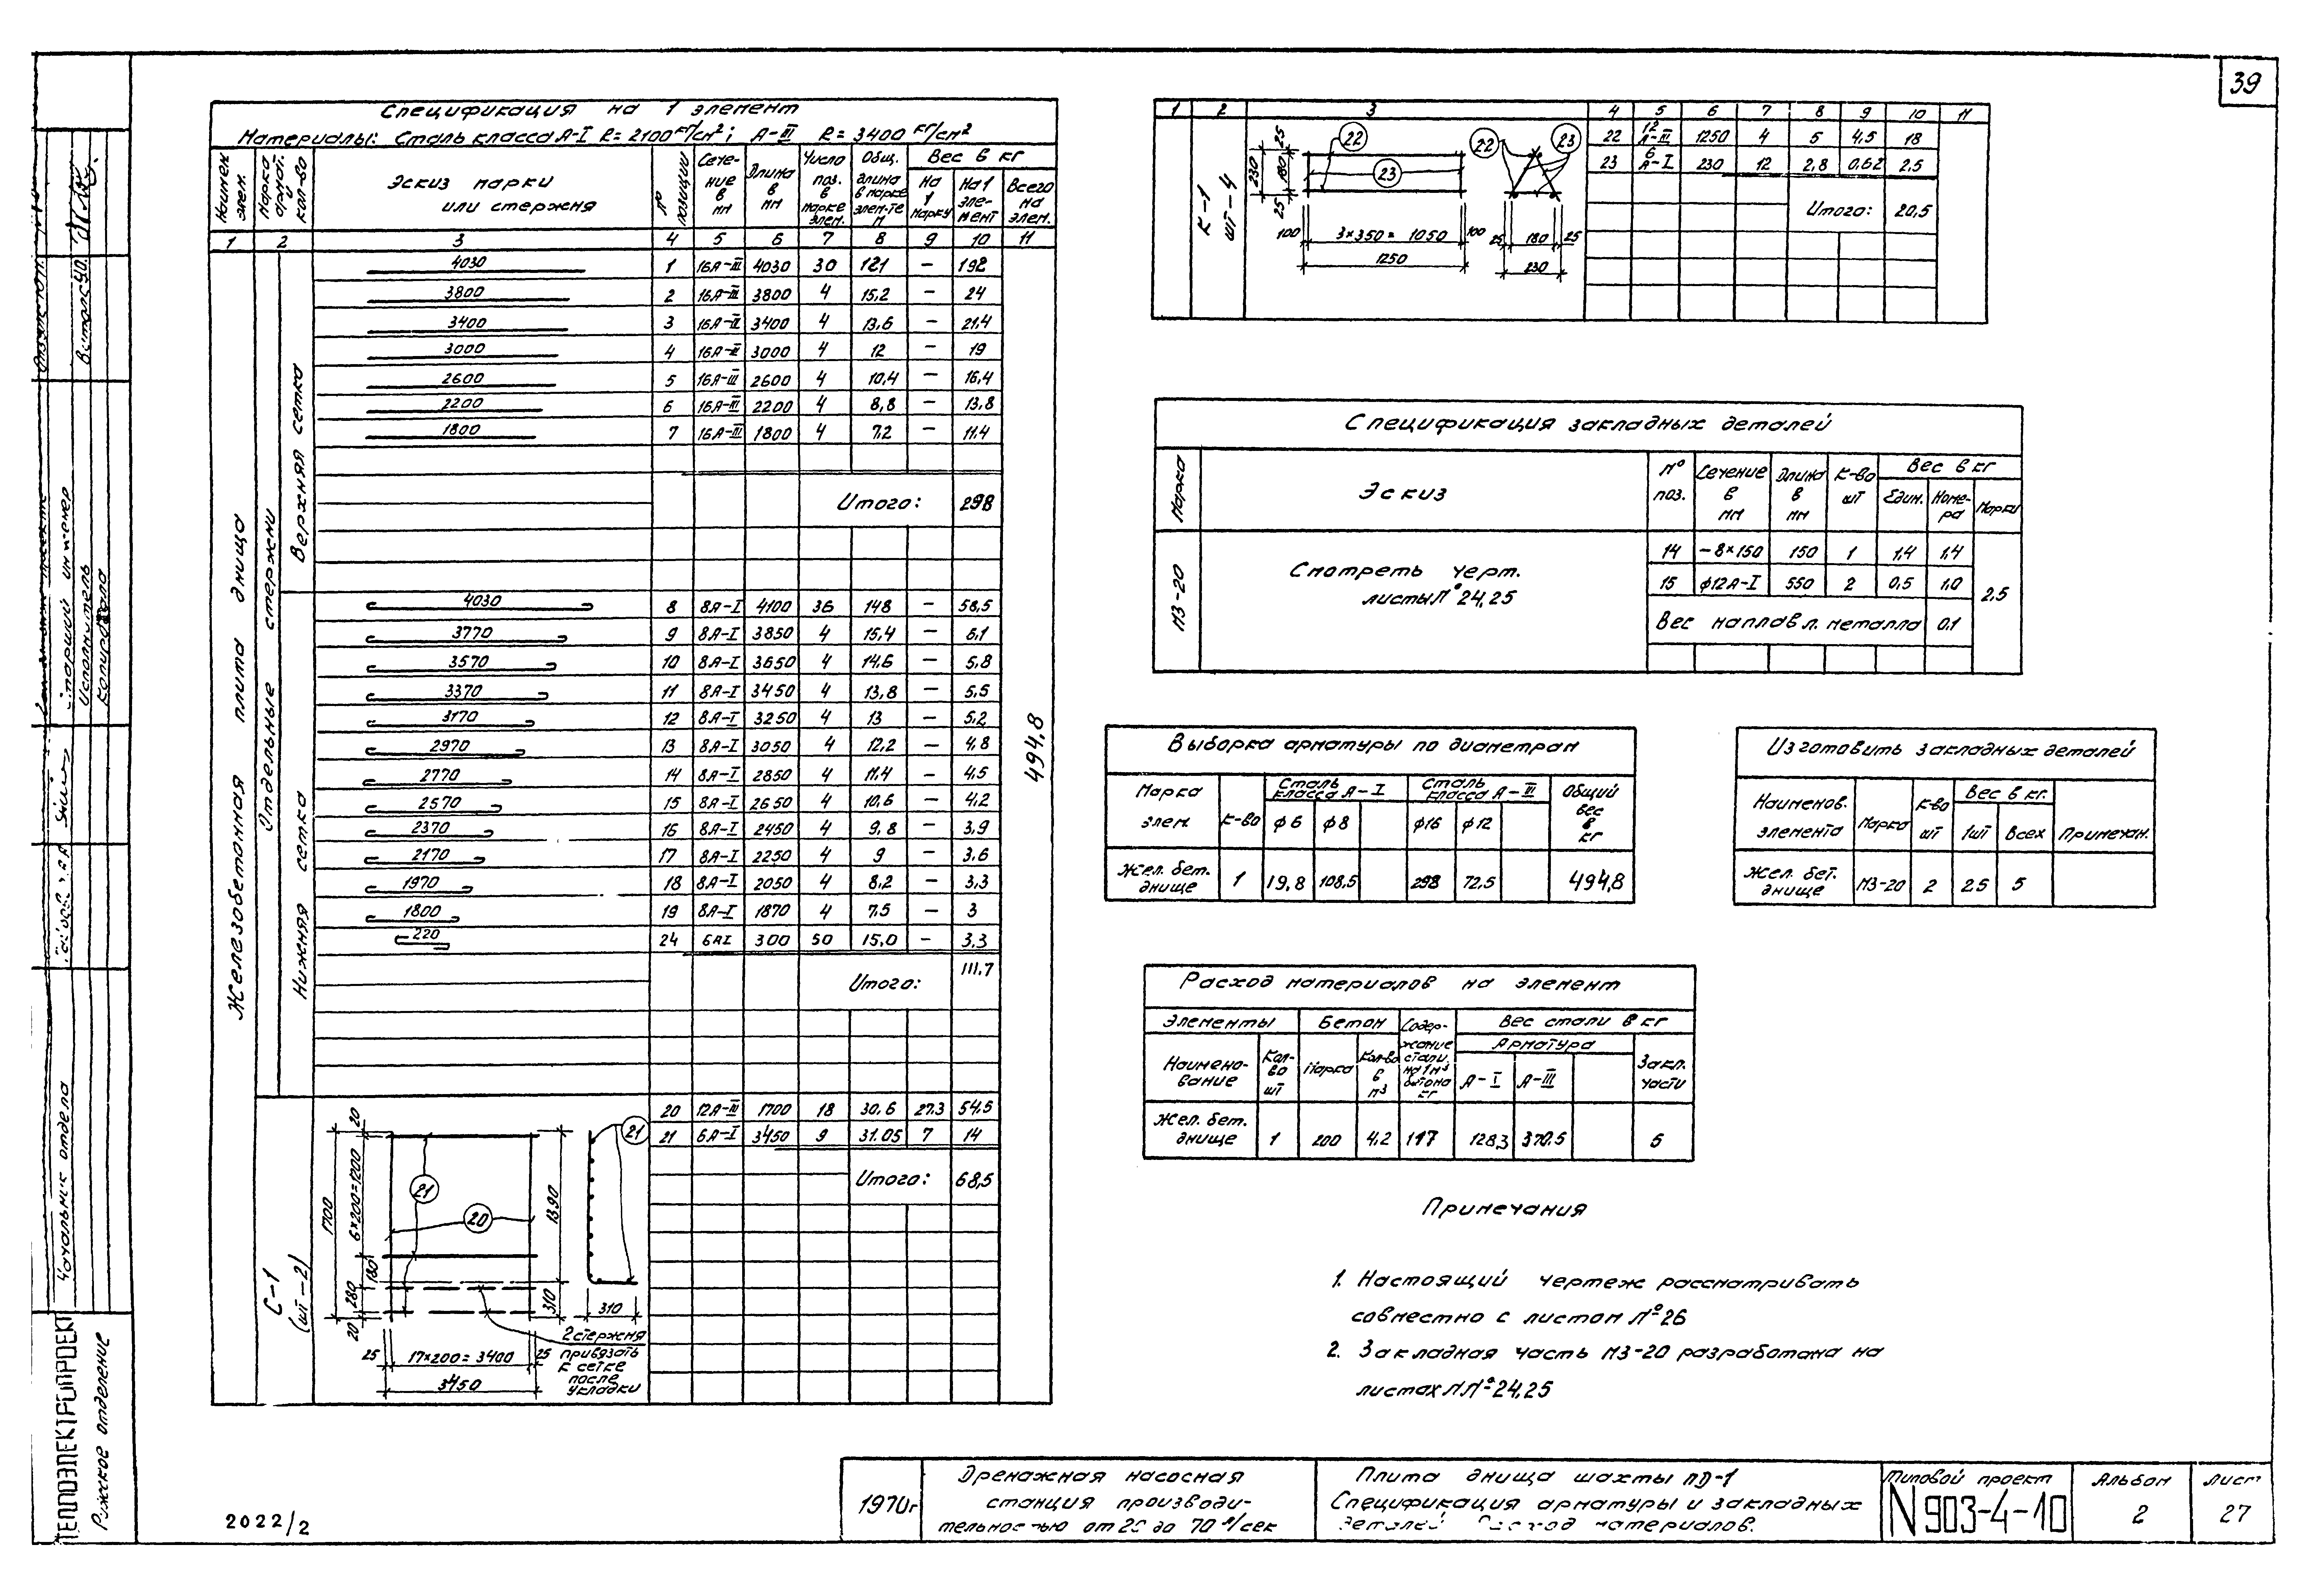 39
Спецификация на 1 элемент
Материалы: Сталь класса А-I R=2100 кг/см²; А-III R=3400 кг/см²
Наимен. элем. | Марка армат. и кол-во | Эскиз марки или стержня | № позиции | Сечение в мм | Длина в мм | Число поз. в марке элем. | Общ. длина в марке элем-те м | Вес в кг | На 1 марку | На 1 элемент | Всего на элем.
1 2 3 4 5 6 7 8 9 10 11
Железобетонная плита днища
Отдельные стержни
Верхняя сетка
4030 1 16А-III 4030 30 121 – 192
3800 2 16А-III 3800 4 15,2 – 24
3400 3 16А-III 3400 4 13,6 – 21,4
3000 4 16А-III 3000 4 12 – 19
2600 5 16А-III 2600 4 10,4 – 16,4
2200 6 16А-III 2200 4 8,8 – 13,8
1800 7 16А-III 1800 4 7,2 – 11,4
Итого: 298
Нижняя сетка
4030 8 8А-I 4100 36 148 – 58,5
3770 9 8А-I 3850 4 15,4 – 6,1
3570 10 8А-I 3650 4 14,6 – 5,8
3370 11 8А-I 3450 4 13,8 – 5,5
3170 12 8А-I 3250 4 13 – 5,2
2970 13 8А-I 3050 4 12,2 – 4,8
2770 14 8А-I 2850 4 11,4 – 4,5
2570 15 8А-I 2650 4 10,6 – 4,2
2370 16 8А-I 2450 4 9,8 – 3,9
2170 17 8А-I 2250 4 9 – 3,6
1970 18 8А-I 2050 4 8,2 – 3,3
1800 19 8А-I 1870 4 7,5 – 3
220 24 6АI 300 50 15,0 – 3,3
Итого: 111,7
494,8
С-1
(шт-2)
20 12А-III 1700 18 30,6 27.3 54,5
21 6А-I 3450 9 31.05 7 14
Итого: 68,5
1700
20
6×200=1200
180
280
20
21
20
1390
310
21
310
25 17×200=3400 25
3450
2 стержня
привязать
к сетке
после
укладки
1 2 3 4 5 6 7 8 9 10 11
К-1
шт-4
22 12 А-III 1250 4 5 4,5 18
23 6 А-I 230 12 2,8 0.62 2,5
Итого: 20,5
230
25
180
25
22
23
22
23
100 3×350=1050 100
1250
25 180 25
230
Спецификация закладных деталей
Марка | Эскиз | № поз. | Сечение в мм | Длина в мм | К-во шт | Вес в кг | Един. | Номера | Марки
МЗ-20
Смотреть черт.
листы № 24,25
14 –8×150 150 1 1,4 1,4
15 ф12А-I 550 2 0,5 1,0
Вес наплавл. металла 0.1
2,5
Выборка арматуры по диаметрам
Марка элем. | К-во | Сталь класса А-I | ф6 | ф8 | Сталь класса А-III | ф16 | ф12 | Общий вес в кг
Жел. бет. днище 1 19,8 108,5 298 72,5 494,8
Изготовить закладных деталей
Наименов. элемента | Марка | К-во шт | Вес в кг. | 1шт | Всех | Примечан.
Жел. бет. днище МЗ-20 2 2.5 5
Расход материалов на элемент
Элементы | Бетон | Содержание стали на 1 м³ бетона кг | Вес стали в кг
Наименование | Кол-во шт | Марка | Кол-во в м³ | Арматура | А-I | А-III | Закл. части
Жел. бет. днище 1 200 4,2 117 128,3 370.5 5
Примечания
1. Настоящий чертеж рассматривать
совместно с листом № 26
2. Закладная часть МЗ-20 разработана на
листах №№ 24,25
1970г
Дренажная насосная
станция производи-
тельностью от 20 до 70 л/сек
Плита днища шахты ПД-1
Спецификация арматуры и закладных
деталей. Расход материалов.
Типовой проект
N 903-4-10
Альбом
2
Лист
27
2022/2
ТЕПЛОЭЛЕКТРОПРОЕКТ
Рижское отделение
Начальник отдела
старший инженер
Исполнитель
Копировала